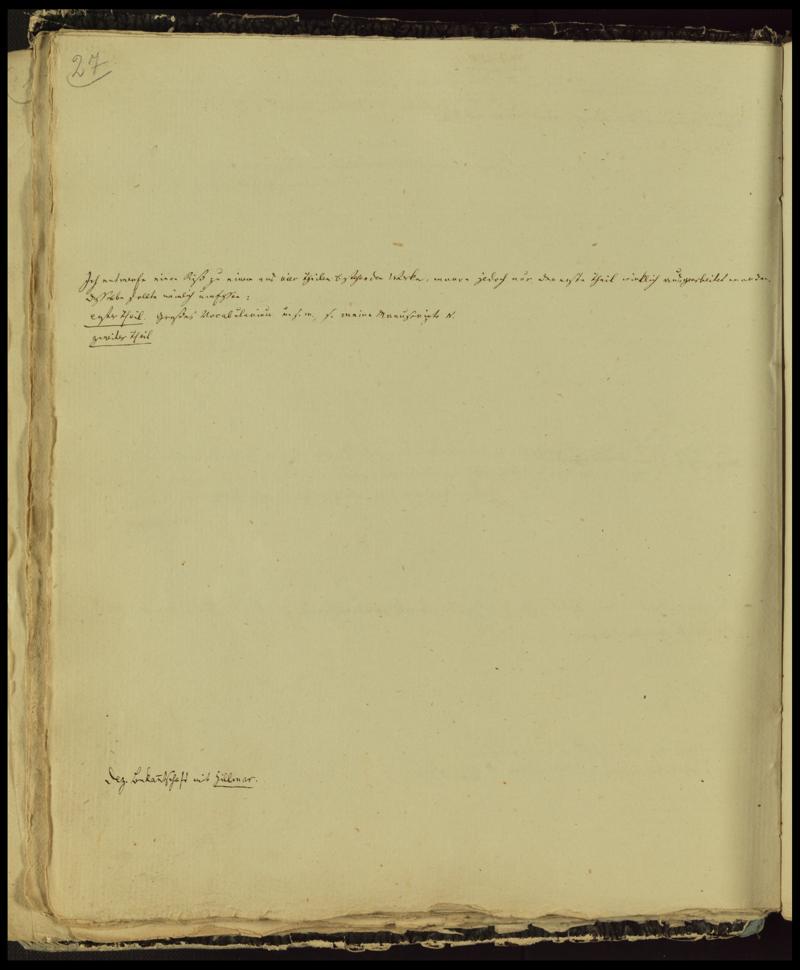 27
Ich entwarf einen Riß zu einem aus vier Theilen bestehenden Werke, wovon jedoch nur der erste Theil wirklich ausgearbeitet worden.
Dasselbe sollte nämlich umfassen:
erster Theil. Großes Vocabularium u. s. w. s. meine Manuscripte N.
zweiter Theil
Dez. Bekanntschaft mit Hillmar.